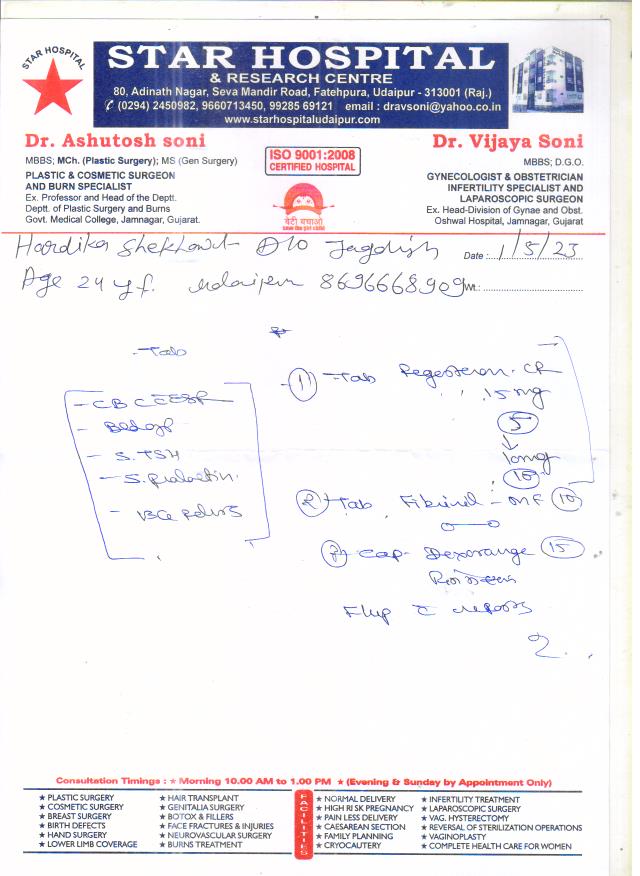 STAR HOSPITAL
STAR HOSPITAL
& RESEARCH CENTRE
80, Adinath Nagar, Seva Mandir Road, Fatehpura, Udaipur - 313001 (Raj.)
(0294) 2450982, 9660713450, 99285 69121 email : dravsoni@yahoo.co.in
www.starhospitaludaipur.com
Dr. Ashutosh soni
MBBS; MCh. (Plastic Surgery); MS (Gen Surgery)
PLASTIC & COSMETIC SURGEON
AND BURN SPECIALIST
Ex. Professor and Head of the Deptt.
Deptt. of Plastic Surgery and Burns
Govt. Medical College, Jamnagar, Gujarat.
ISO 9001:2008
CERTIFIED HOSPITAL
बेटी बचाओ
save the girl child
Dr. Vijaya Soni
MBBS; D.G.O.
GYNECOLOGIST & OBSTETRICIAN
INFERTILITY SPECIALIST AND
LAPAROSCOPIC SURGEON
Ex. Head-Division of Gynae and Obst.
Oshwal Hospital, Jamnagar, Gujarat
Hardika Shekhawat D/O Jagdish Date : 1/5/23
Age 24 y f. Udaipur 8696668909 Wt.:
- CBC ESR
- Bld gp
- S. TSH
- S. prolactin
1) Tab Regesteron CR
15 mg
5
↓
10mg
10
2) Tab MF 10
3) Cap Dexorange 15
Flup c reports
Consultation Timings : ★ Morning 10.00 AM to 1.00 PM ★ (Evening & Sunday by Appointment Only)
★ PLASTIC SURGERY
★ COSMETIC SURGERY
★ BREAST SURGERY
★ BIRTH DEFECTS
★ HAND SURGERY
★ LOWER LIMB COVERAGE
★ HAIR TRANSPLANT
★ GENITALIA SURGERY
★ BOTOX & FILLERS
★ FACE FRACTURES & INJURIES
★ NEUROVASCULAR SURGERY
★ BURNS TREATMENT
FACILITIES
★ NORMAL DELIVERY
★ HIGH RISK PREGNANCY
★ PAIN LESS DELIVERY
★ CAESAREAN SECTION
★ FAMILY PLANNING
★ CRYOCAUTERY
★ INFERTILITY TREATMENT
★ LAPAROSCOPIC SURGERY
★ VAG. HYSTERECTOMY
★ REVERSAL OF STERILIZATION OPERATIONS
★ VAGINOPLASTY
★ COMPLETE HEALTH CARE FOR WOMEN